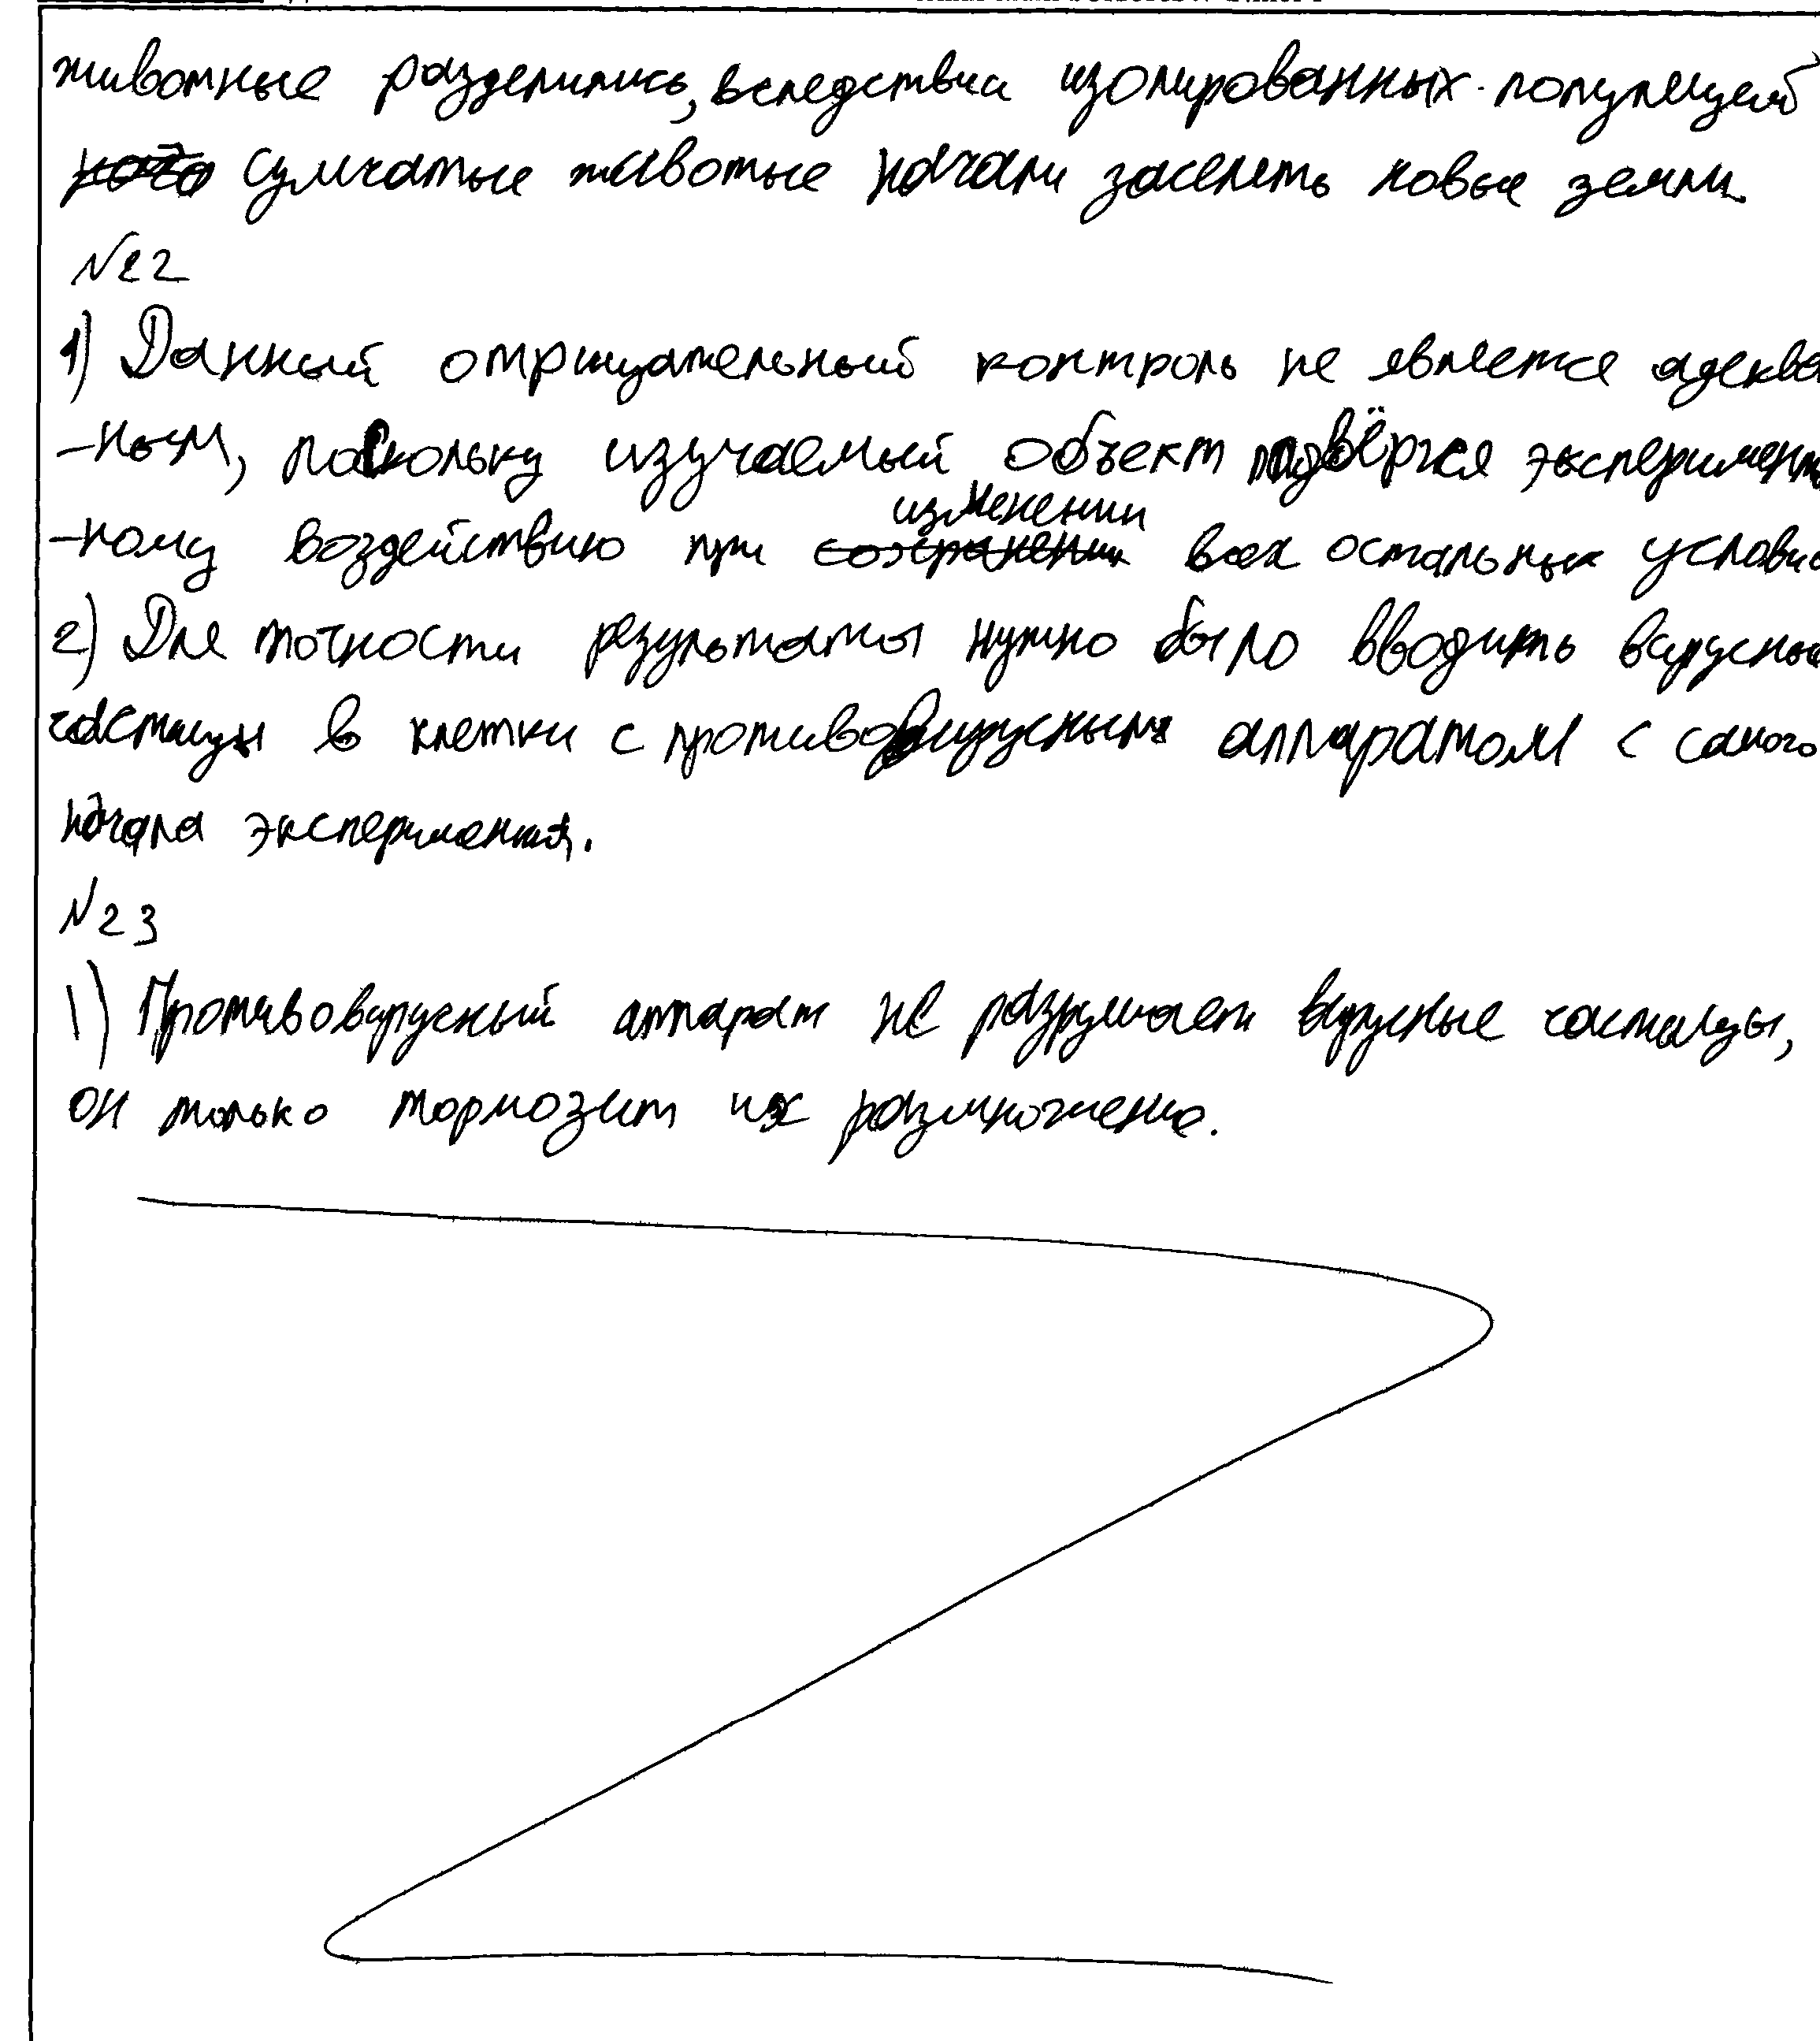 животные разделились, вследствии изолированных популяций
сумчатые животые начали заселять новые земли.
№22
1) Данный отрицательный контроль не является адеква
-ным, поскольку изучаемый объект подвёргся эксперимент
изменении
-ному воздействию при сохранении всех остальных услови
2) Для точности результаты нужно было вводить вирусные
частицы в клетки с противовирусным аппаратом с самого
начала эксперимента.
№23
1) Противовирусный аппарат не разрушает вирусные частицы,
он только тормозит их размножение.